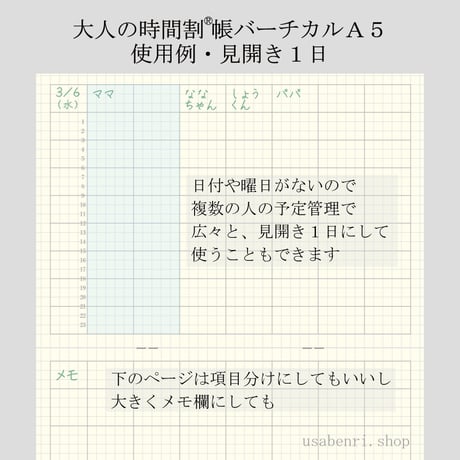 大人の時間割®帳バーチカルA5
使用例・見開き1日
3/6 ママ なな しょう パパ
(水) ちゃん くん
1
2
3
4
5
6
7
8
9
10
11
12
13
14
15
16
17
18
19
20
21
22
23
日付や曜日がないので
複数の人の予定管理で
広々と、見開き1日にして
使うこともできます
メモ
下のページは項目分けにしてもいいし
大きくメモ欄にしても
usabenri.shop